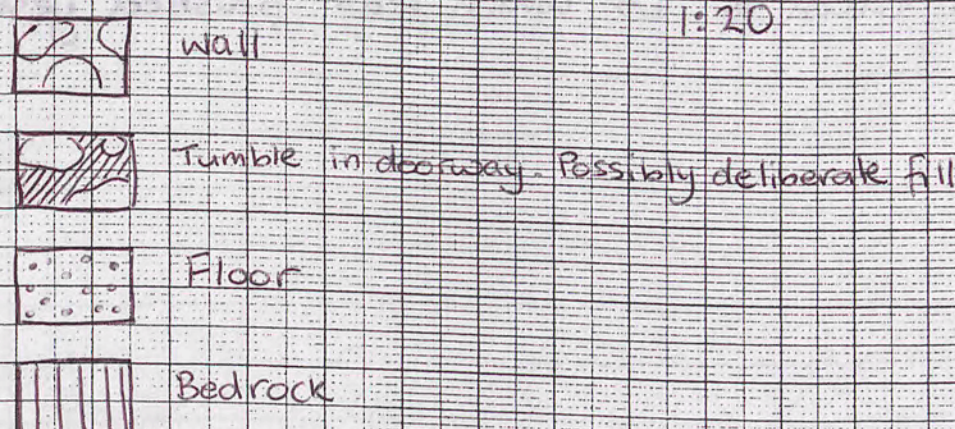 1:20
Wall
Tumble in doorway. Possibly deliberate fill
Floor
Bedrock